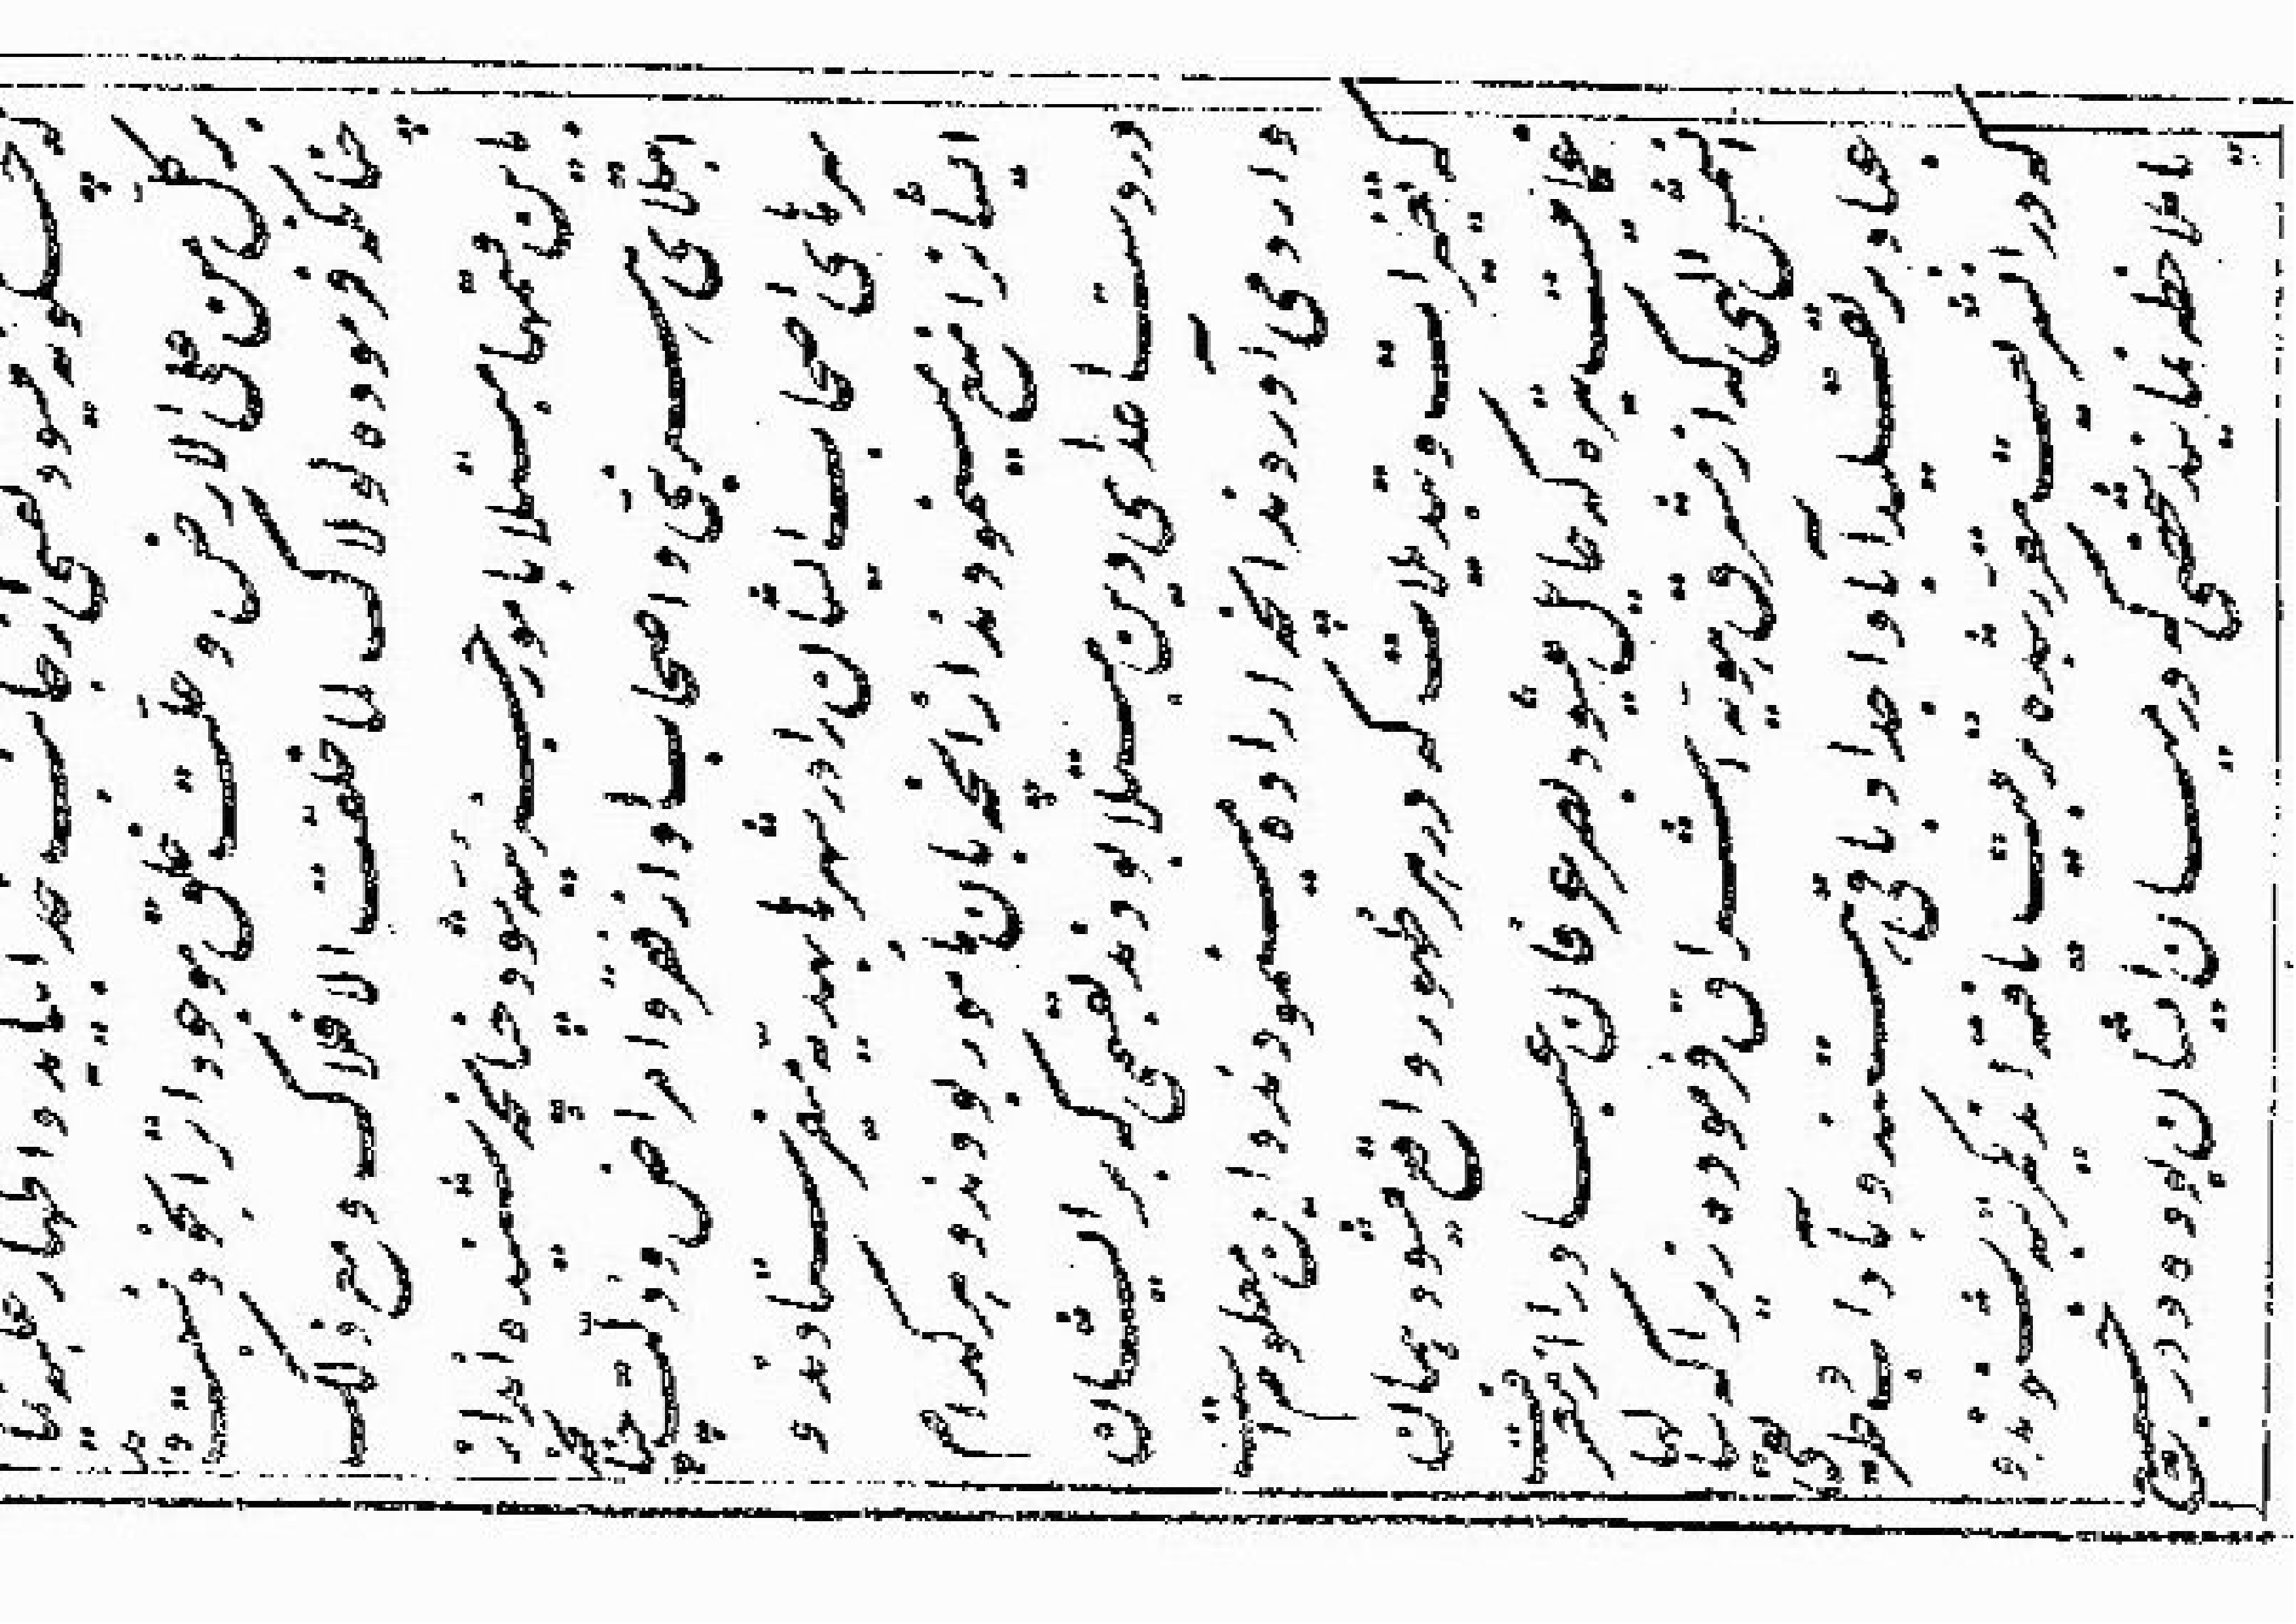 بر کل من علی الارض و علت خلق موجودات
چنانکه فرموده لولاک لما خلقت الافلاک و مع ذلک
باین قسمها مبتلا بامور جزئیه شود چنانچه شنیده اند از
ابتلای هر نبی و اصحاب او از فقر و امراض و ذلت چنانچه
سرهای اصحاب ایشان را در شهرها بهدیه میفرستادند و
ایشان را منع مینمودند از آنچه بآن مامور بودند و هر کدام
در دست اعدای دین مبتلا بودند بقسمی که بر ایشان
وارد می آوردند آنچه را اراده مینمودند و این معلوم است
که تغییرات و تبدیلات که در هر ظهور واقع میشود همان
غمامیست تیره که حایل میشود بصر عرفان عباد را از معرفت
آن شمس الهی که از مشرق هویت اشراق فرموده زیرا که سالها
عباد بر تقلید آبا و اجداد باقی هستند و بآداب و طریقی
که در آن شریعت مقرر شده تربیت یافته اند یکمرتبه بشنوند و
یا ملاحظه نمایند شخصی که در میان ایشان بوده و در جمیع